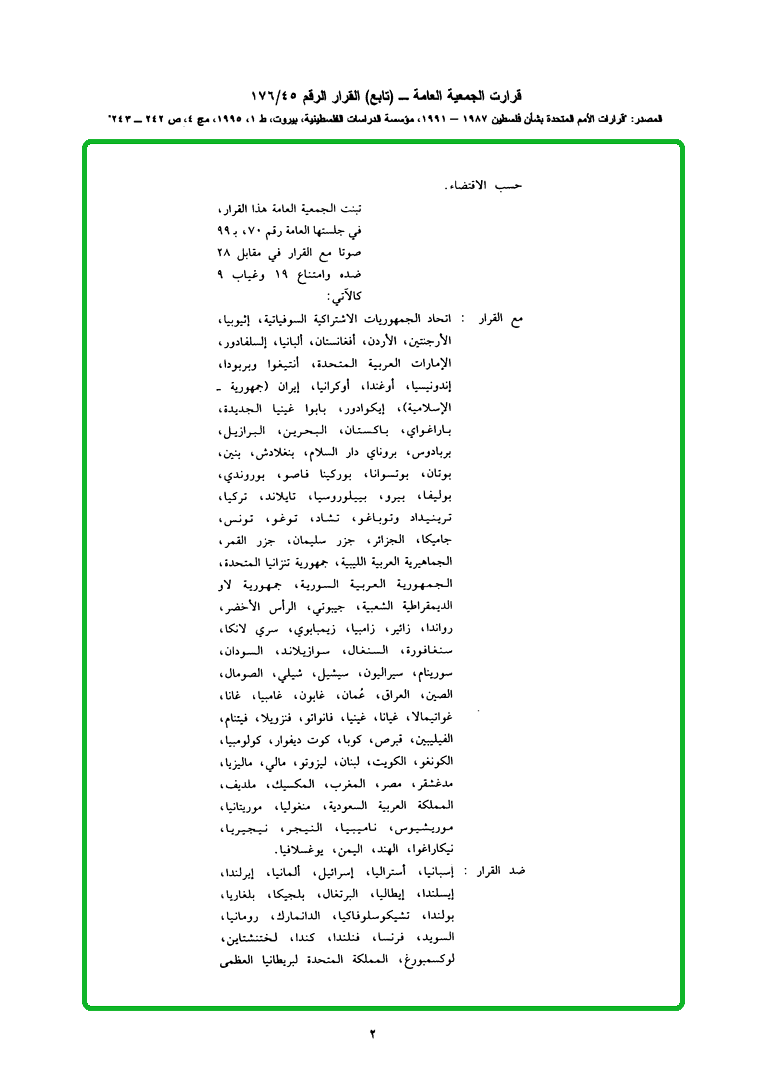 قرارت الجمعية العامة ــ (تابع) القرار الرقم ١٧٦/٤٥
المصدر: "قرارات الأمم المتحدة بشأن فلسطين ١٩٨٧ – ١٩٩١، مؤسسة الدراسات الفلسطينية، بيروت، ط ١، ١٩٩٥، مج ٤، ص ٢٤٢ ــ ٢٤٣"
حسب الاقتضاء.
تبنت الجمعية العامة هذا القرار،
في جلستها العامة رقم ٧٠، بـ ٩٩
صوتا مع القرار في مقابل ٢٨
ضده وامتناع ١٩ وغياب ٩
كالآتي:
مع القرار : اتحاد الجمهوريات الاشتراكية السوفياتية، إثيوبيا،
الأرجنتين، الأردن، أفغانستان، ألبانيا، إلسلفادور،
الإمارات العربية المتحدة، أنتيغوا وبربودا،
إندونيسيا، أوغندا، أوكرانيا، إيران (جمهورية ـ
الإسلامية)، إيكوادور، بابوا غينيا الجديدة،
باراغواي، باكستان، البحرين، البرازيل،
بربادوس، بروناي دار السلام، بنغلادش، بنين،
بوتان، بوتسوانا، بوركينا فاصو، بوروندي،
بوليفا، بيرو، بييلوروسيا، تايلاند، تركيا،
ترينيداد وتوباغو، تشاد، توغو، تونس،
جاميكا، الجزائر، جزر سليمان، جزر القمر،
الجماهيرية العربية الليبية، جمهورية تنزانيا المتحدة،
الجمهورية العربية السورية، جمهورية لاو
الديمقراطية الشعبية، جيبوتي، الرأس الأخضر،
رواندا، زائير، زامبيا، زيمبابوي، سري لانكا،
سنغافورة، السنغال، سوازيلاند، السودان،
سورينام، سيراليون، سيشيل، شيلي، الصومال،
الصين، العراق، عُمان، غابون، غامبيا، غانا،
غواتيمالا، غيانا، غينيا، فانواتو، فنزويلا، فيتنام،
الفيليبين، قبرص، كوبا، كوت ديفوار، كولومبيا،
الكونغو، الكويت، لبنان، ليزوتو، مالي، ماليزيا،
مدغشقر، مصر، المغرب، المكسيك، ملديف،
المملكة العربية السعودية، منغوليا، موريتانيا،
موريشيوس، ناميبيا، النيجر، نيجيريا،
نيكاراغوا، الهند، اليمن، يوغسلافيا.
ضد القرار : إسبانيا، أستراليا، إسرائيل، ألمانيا، إيرلندا،
إيسلندا، إيطاليا، البرتغال، بلجيكا، بلغاريا،
بولندا، تشيكوسلوفاكيا، الدانمارك، رومانيا،
السويد، فرنسا، فنلندا، كندا، لختنشتاين،
لوكسمبورغ، المملكة المتحدة لبريطانيا العظمى
٢